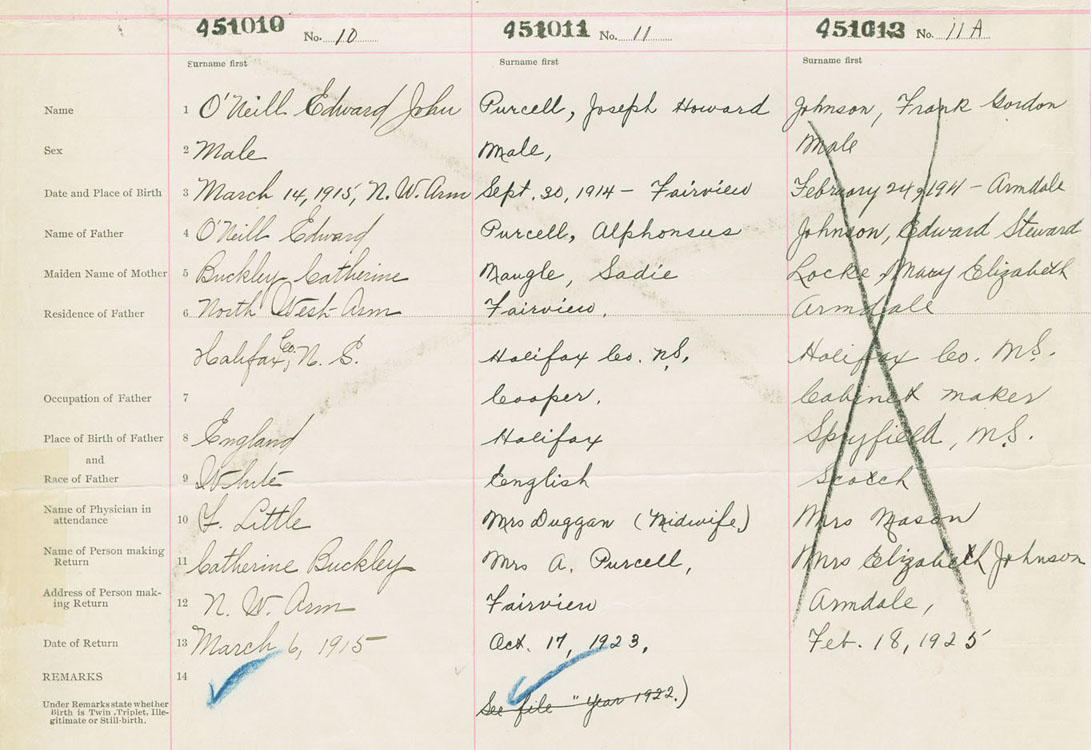 451010 No. 10 451011 No. 11 451013 No. 11 A
Surname first Surname first Surname first
Name 1 O'Neill Edward John Purcell, Joseph Howard Johnson, Frank Gordon
Sex 2 Male Male, Male
Date and Place of Birth 3 March 14, 1915, N. W. Arm Sept. 30, 1914 - Fairview February 24, 1911 - Armdale
Name of Father 4 O'Neill Edward Purcell, Alphonsus Johnson, Edward Steward
Maiden Name of Mother 5 Buckley Catherine Maugle, Sadie Locke, Mary Elizabeth
Residence of Father 6 North West Arm Fairview, Armdale
Halifax, Co. N. S. Halifax Co. N.S. Halifax Co. N.S.
Occupation of Father 7 Cooper, Cabinet maker
Place of Birth of Father 8 England Halifax Spryfield, N.S.
and
Race of Father 9 White English Scotch
Name of Physician in
attendance 10 F. Little Mrs Duggan (Midwife) Mrs Mason
Name of Person making
Return 11 Catherine Buckley Mrs A. Purcell, Mrs Elizabeth Johnson
Address of Person mak-
ing Return 12 N. W. Arm Fairview Armdale,
Date of Return 13 March 6, 1915 Oct. 17, 1923, Feb. 18, 1925
REMARKS 14
Under Remarks state whether
Birth is Twin, Triplet, Ille-
gitimate or Still-birth.
See file "Year 1922.)